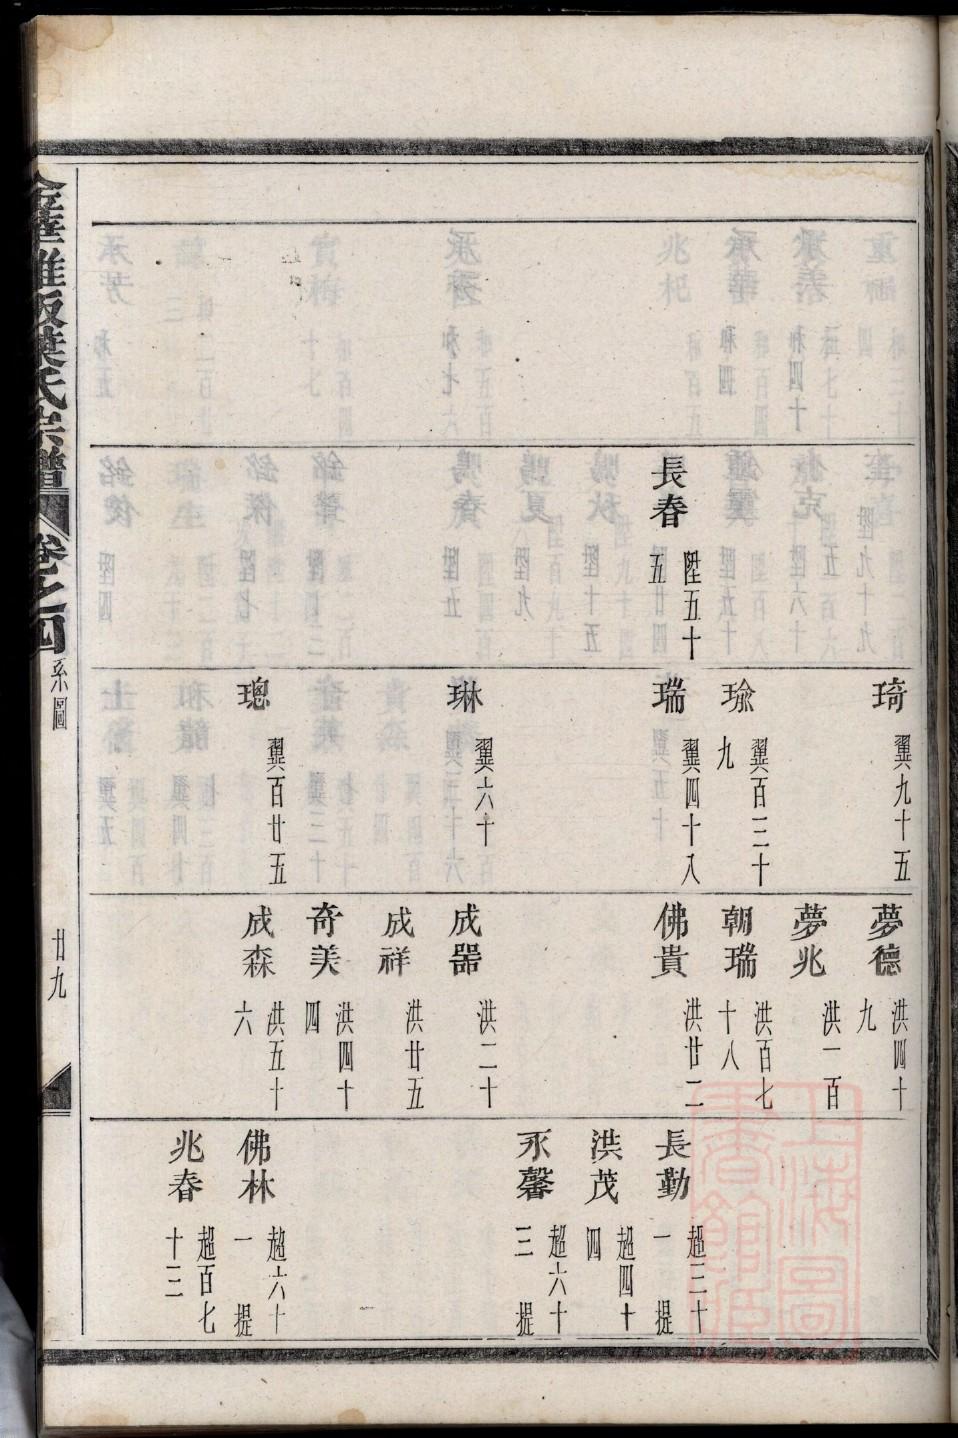 卷之四
系圖
廿九
長春 陞五十五
琦 翼九十五
瑜 翼百三十九
瑞 翼四十八
琳 翼六十
璁 翼百廿五
夢德 洪四十九
夢兆 洪一百
朝瑞 洪百七十八
佛貴 洪廿二
成器 洪二十
成祥 洪廿五
奇美 洪四十四
成森 洪五十六
長勤 超三十一 提
洪茂 超四十四
永馨 超六十三 提
佛林 超六十一 提
兆春 超百七十三
上海圖書館藏